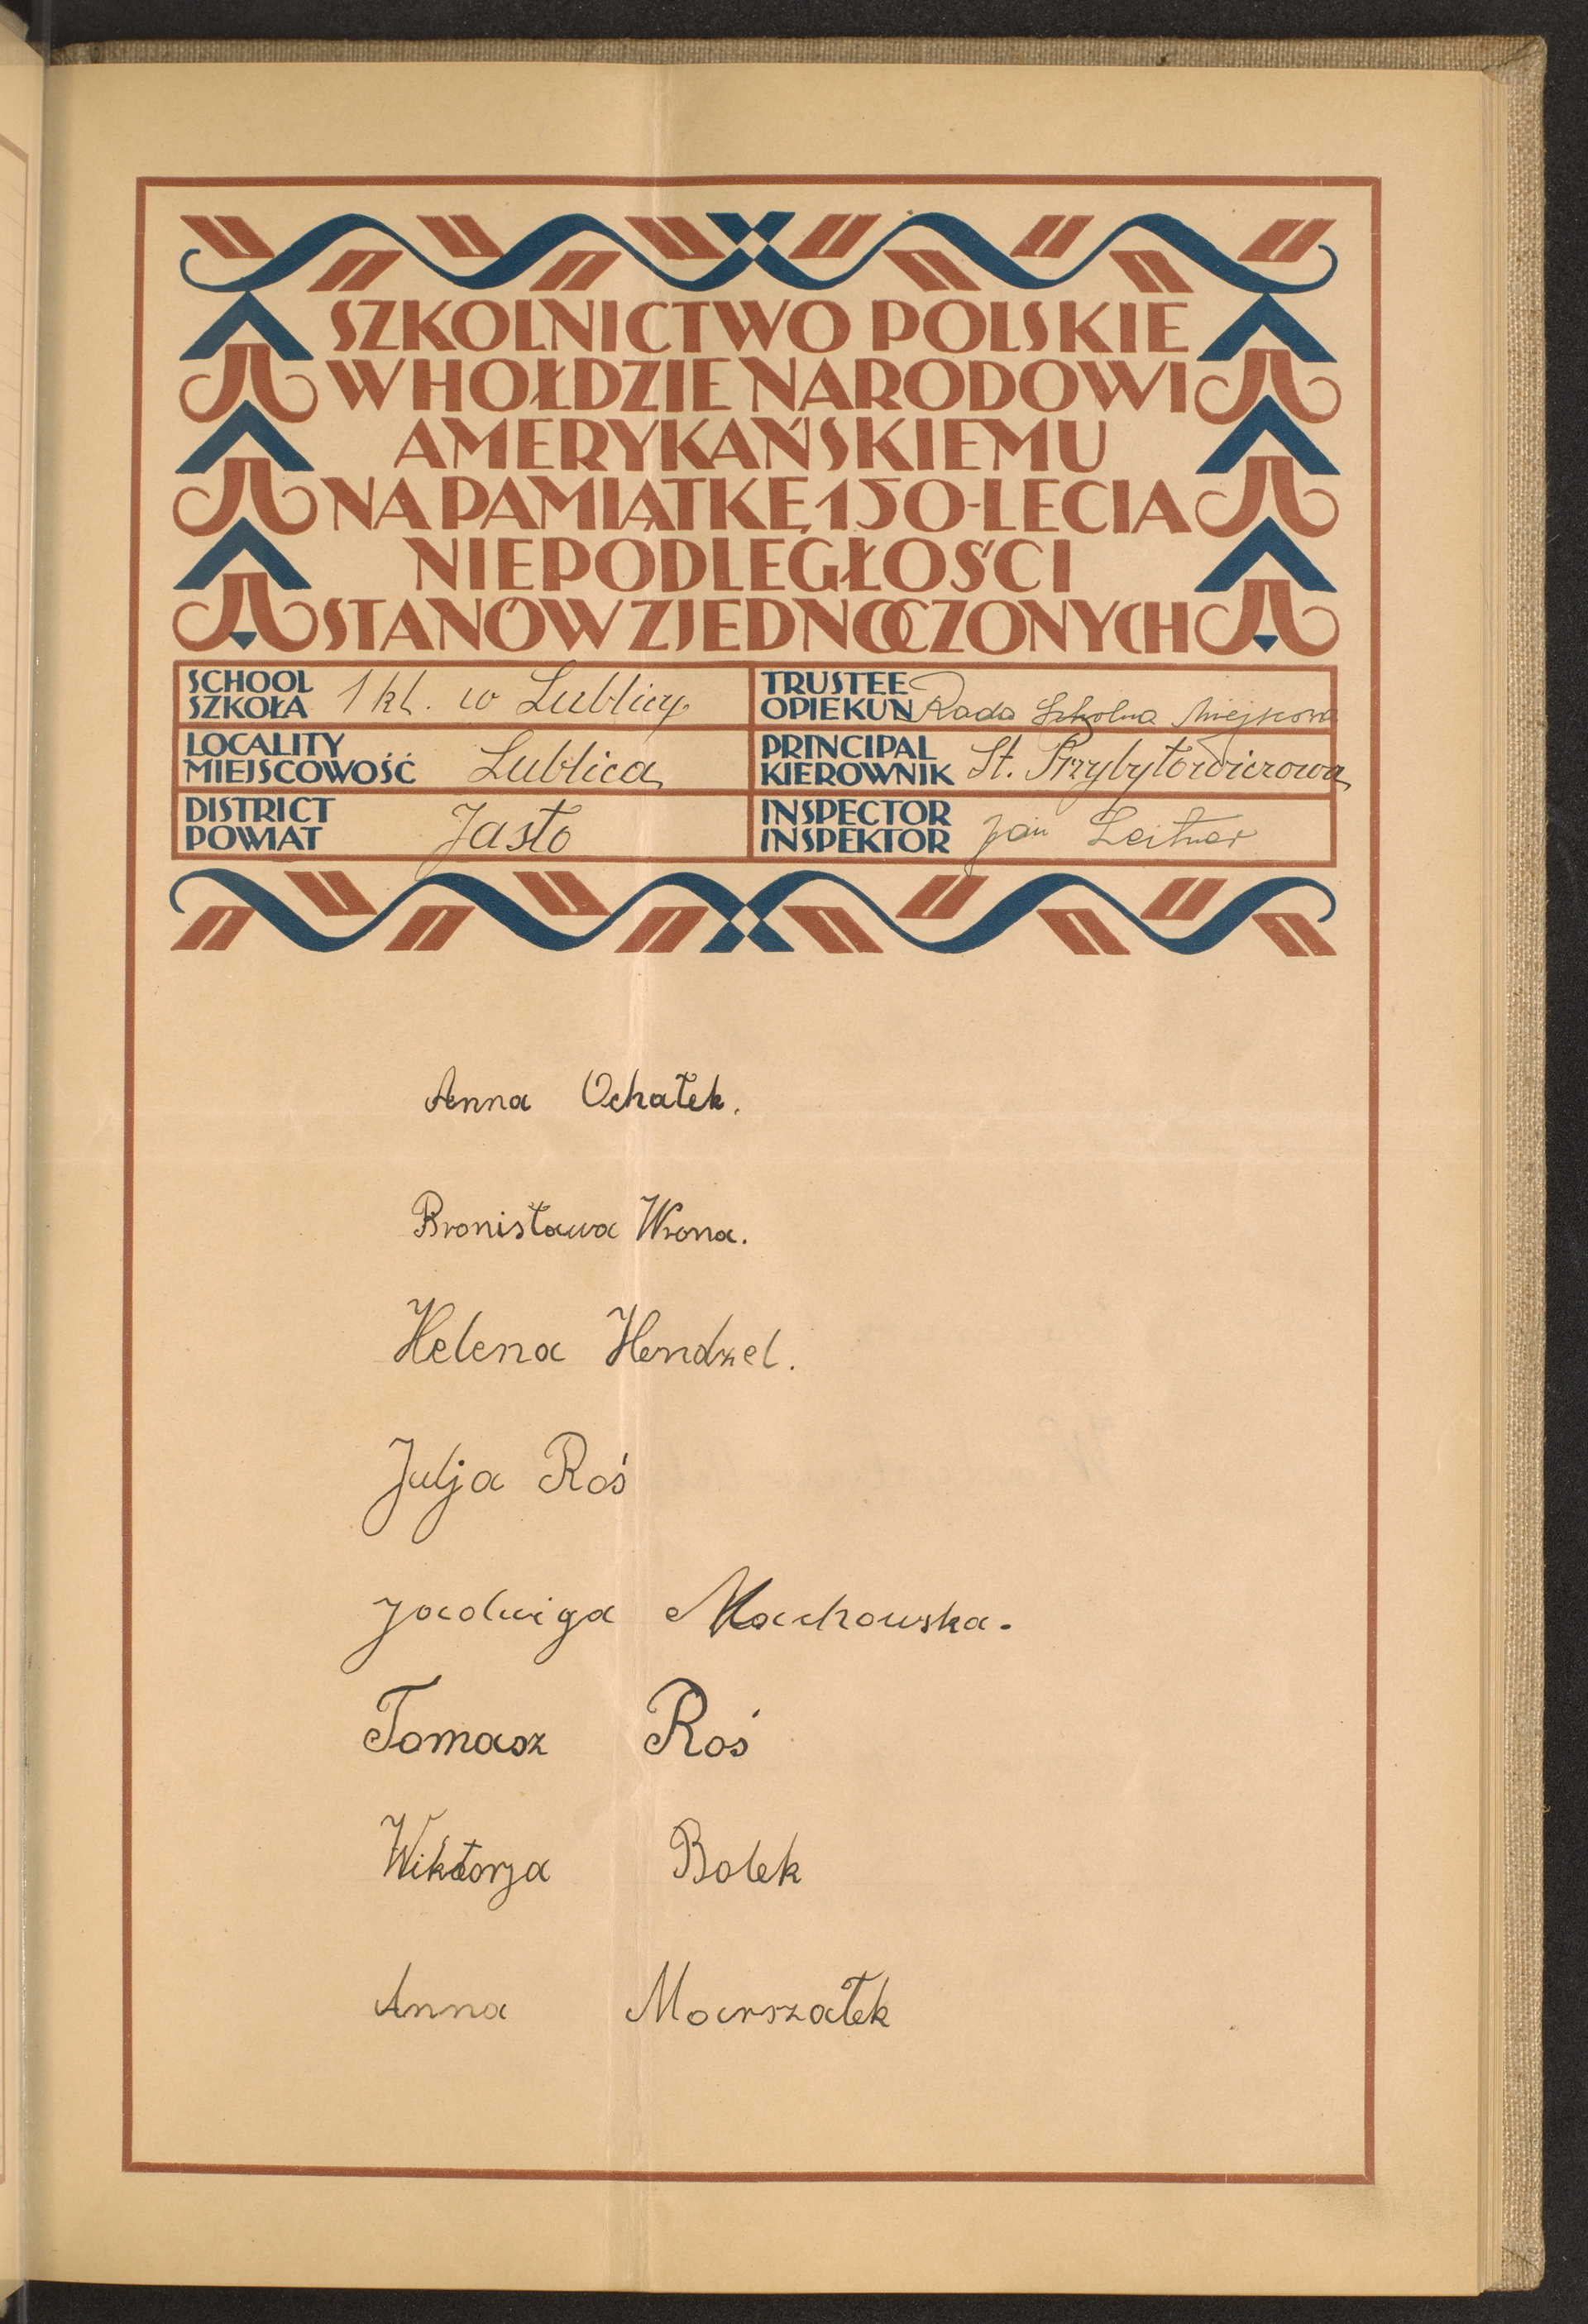 SZKOLNICTWO POLSKIE
W HOŁDZIE NARODOWI
AMERYKAŃSKIEMU
NA PAMIĄTKĘ 150-LECIA
NIEPODLEGŁOŚCI
STANÓW ZJEDNOCZONYCH
SCHOOL
SZKOŁA 1 kl. w Lublicy
LOCALITY
MIEJSCOWOŚĆ Lublica
DISTRICT
POWIAT Jasło
TRUSTEE
OPIEKUN Rada Szkolna Miejscowa
PRINCIPAL
KIEROWNIK St. Przybyłowiczowa
INSPECTOR
INSPEKTOR Jan Leitner
Anna Ochałek.
Bronisława Wrona.
Helena Hendzel.
Julja Roś
Jadwiga Machowska.
Tomasz Roś
Wiktorja Bolek
Anna Marszałek